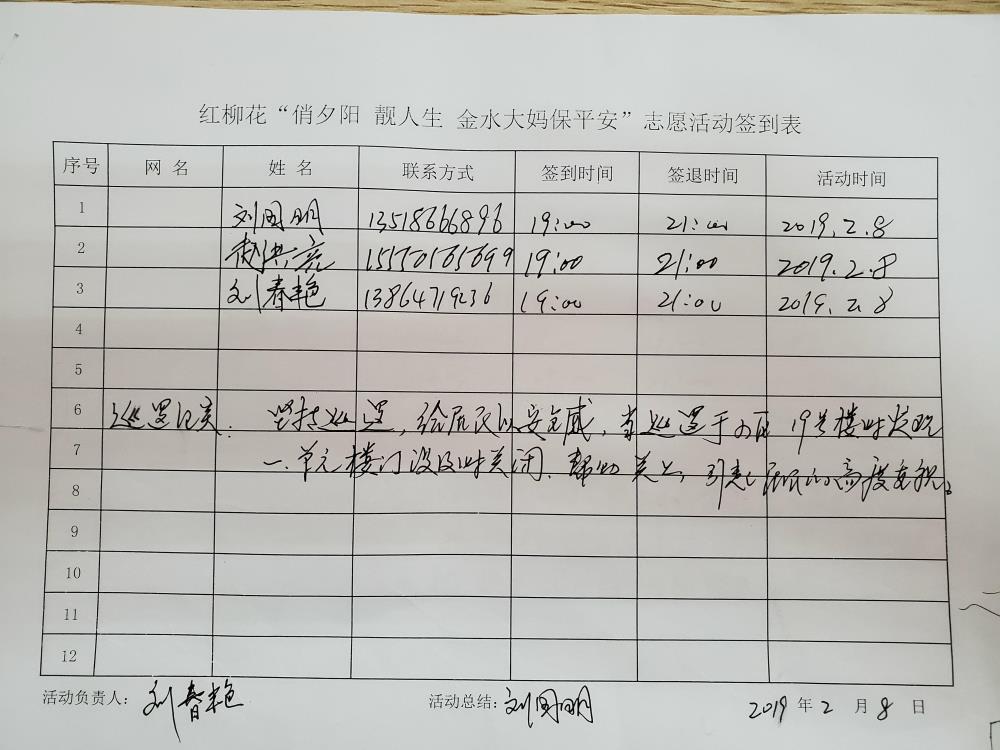 红柳花“俏夕阳 靓人生 金水大妈保平安”志愿活动签到表
序号 网名 姓名 联系方式 签到时间 签退时间 活动时间
1 刘国明 13518666896 19:00 21:00 2019.2.8
2 赵洪亮 19:00 21:00 2019.2.8
3 刘春艳 13864719236 19:00 21:00 2019.2.8
4
5
6 巡逻记录: 坚持巡逻,给居民以安全感,当巡逻于小区19号楼时发现
7 一单元楼门没及时关闭、帮助关上,引起居民的高度重视。
8
9
10
11
12
活动负责人: 刘春艳 活动总结: 刘国明 2019年2月8日